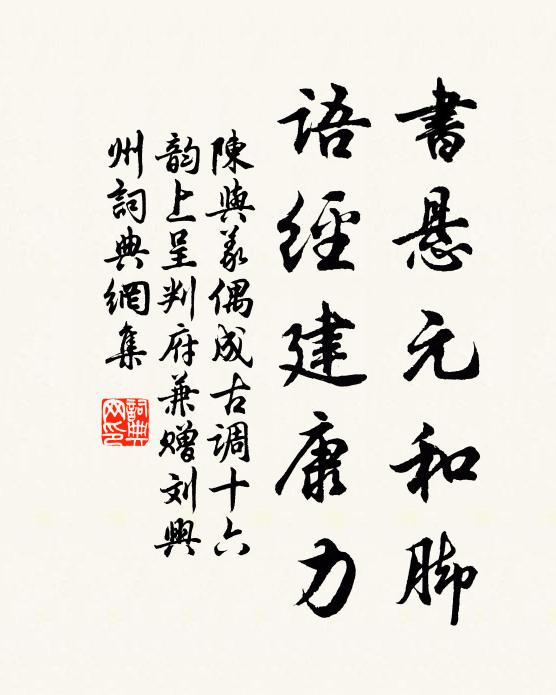 書悬元和脚
語經建康力
陳與义偶成古调十六
韵上呈判府兼赠刘興
州詞典網集
詞典网印